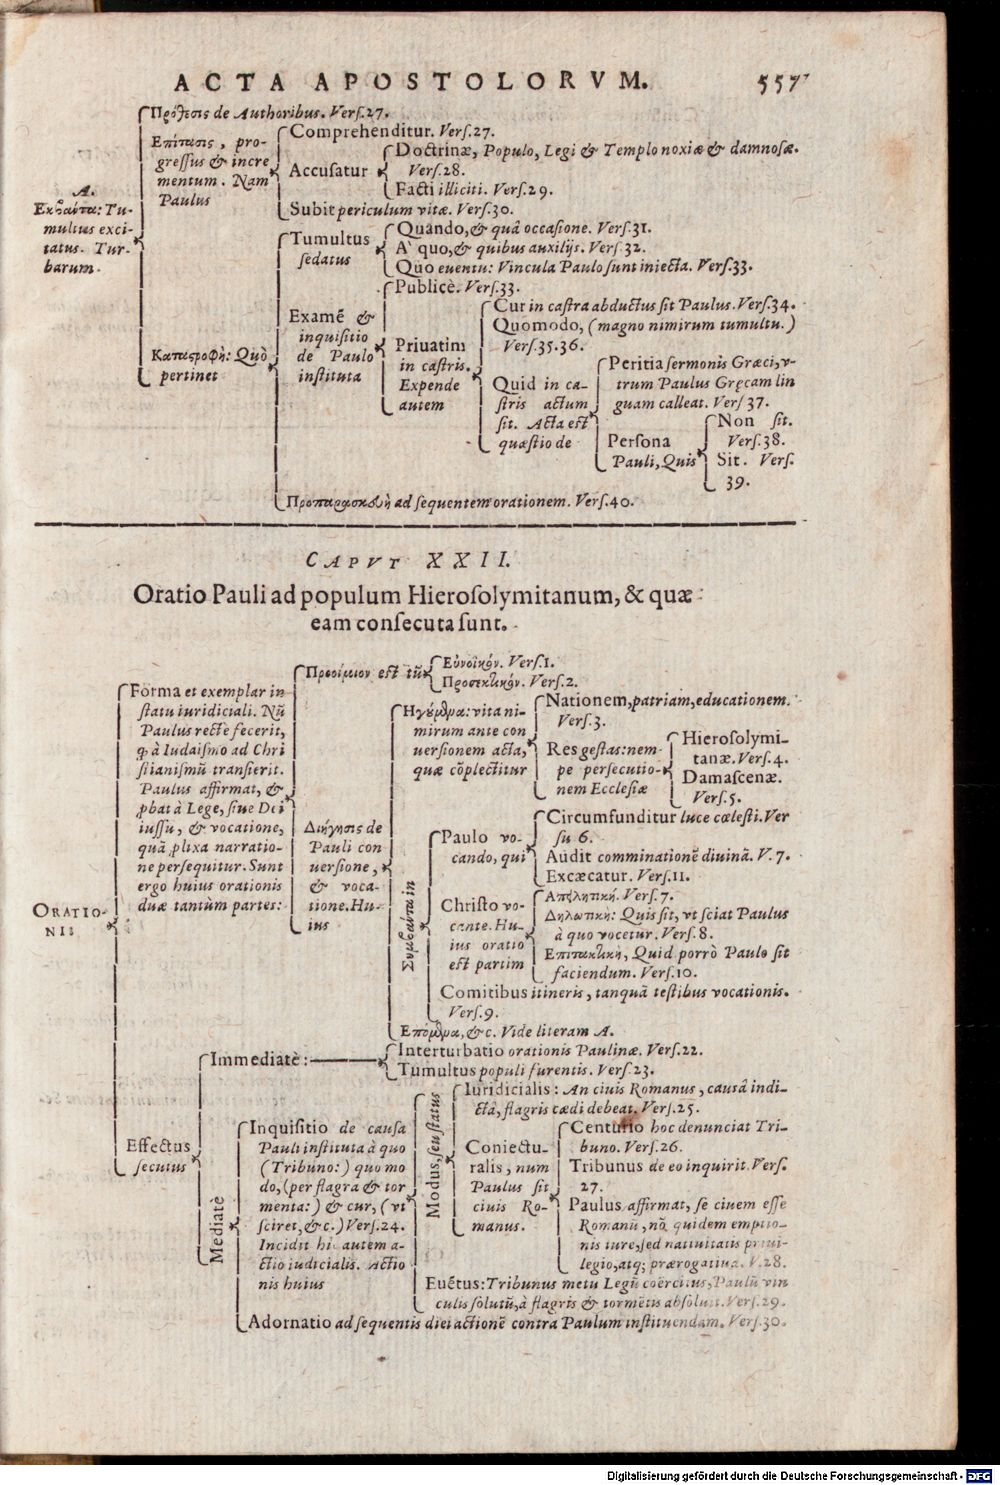 ACTA APOSTOLORVM. 557
Πρόθεσις de Authoribus. Verſ.27.
A.
Εκβαντα: Tu-
multus exci-
tatus. Tur-
barum.
Επίτασις, pro-
greſſus & incre
mentum. Nam
Paulus
Comprehenditur. Verſ.27.
Accuſatur
Doctrinæ, Populo, Legi & Templo noxiæ & damnoſæ.
Verſ.28.
Facti illiciti. Verſ.29.
Subit periculum vitæ. Verſ.30.
Καταςροφὴ: Quò
pertinet
Tumultus
ſedatus
Quando, & quâ occaſione. Verſ.31.
A` quo, & quibus auxilijs. Verſ.32.
Quo euentu: Vincula Paulo ſunt iniecta. Verſ.33.
Examē &
inquiſitio
de Paulo
inſtituta
Publicè. Verſ.33.
Priuatim
in caſtris.
Expende
autem
Cur in caſtra abductus ſit Paulus. Verſ.34.
Quomodo, (magno nimirum tumultu.)
Verſ.35.36.
Quid in ca-
ſtris actum
ſit. Acta eſt
quæſtio de
Peritia ſermonis Græci, v-
trum Paulus Gręcam lin
guam calleat. Verſ 37.
Perſona
Pauli, Quis
Non ſit.
Verſ.38.
Sit. Verſ.
39.
Προπαρασκευὴ ad ſequentem orationem. Verſ.40.
CAPVT XXII.
Oratio Pauli ad populum Hieroſolymitanum, & quæ
eam conſecuta ſunt.
ORATIO-
NIS
Forma et exemplar in
ſtatu iuridiciali. Nū
Paulus rectè fecerit,
q, à Iudaiſmo ad Chri
ſtianiſmū tranſierit.
Paulus affirmat, &
ꝓbat à Lege, ſiue Dei
iuſſu, & vocatione,
quā ꝓlixa narratio-
ne perſequitur. Sunt
ergo huius orationis
duæ tantùm partes:
Προοίμιον eſt tū
Εὐνοϊκόν. Verſ.1.
Προσεκτικόν. Verſ.2.
Διήγησις de
Pauli con
uerſione,
& voca-
tione. Hu-
ius
Ηγούμενα: vita ni-
mirum ante con
uerſionem acta,
quæ cōplectitur
Nationem, patriam, educationem.
Verſ.3.
Res geſtas: nem-
pe perſecutio-
nem Eccleſiæ
Hieroſolymi-
tanæ. Verſ.4.
Damaſcenæ.
Verſ.5.
Συμβάντα in
Paulo vo-
cando, qui
Circumfunditur luce cœleſti. Ver
ſu 6.
Audit comminationē diuinā. V.7.
Excæcatur. Verſ.11.
Chriſto vo-
cante. Hu-
ius oratio
eſt partim
Απειλητική. Verſ.7.
Δηλωτική: Quis ſit, vt ſciat Paulus
à quo vocetur. Verſ.8.
Επιτακτικὴ, Quid porrò Paulo ſit
faciendum. Verſ.10.
Comitibus itineris, tanquā teſtibus vocationis.
Verſ.9.
Επόμενα, &c. Vide literam A.
Effectus
ſecutus
Immediatè:
Interturbatio orationis Paulinæ. Verſ.22.
Tumultus populi furentis. Verſ.23.
Mediatè
Inquiſitio de cauſa
Pauli inſtituta à quo
(Tribuno:) quo mo
do, (per flagra & tor
menta:) & cur, (vt
ſciret, &c.) Verſ.24.
Incidit hic autem a-
ctio iudicialis. Actio
nis huius
Modus, ſeu ſtatus
Iuridicialis: An ciuis Romanus, cauſâ indi-
ctâ, flagris cædi debeat. Verſ.25.
Coniectu-
ralis, num
Paulus ſit
ciuis Ro-
manus.
Centurio hoc denunciat Tri-
buno. Verſ.26.
Tribunus de eo inquirit. Verſ.
27.
Paulus affirmat, ſe ciuem eſſe
Romanū, nō quidem emptio-
nis iure, ſed natiuitatis priui-
legio, atq; prærogatiua. V.28.
Euētus: Tribunus metu Legū coërcitus, Paulū vin
culis ſolutū, à flagris & tormētis abſoluit. Verſ.29.
Adornatio ad ſequentis diei actionē contra Paulum inſtituendam. Verſ.30.
Digitalisierung gefördert durch die Deutsche Forschungsgemeinschaft - DFG